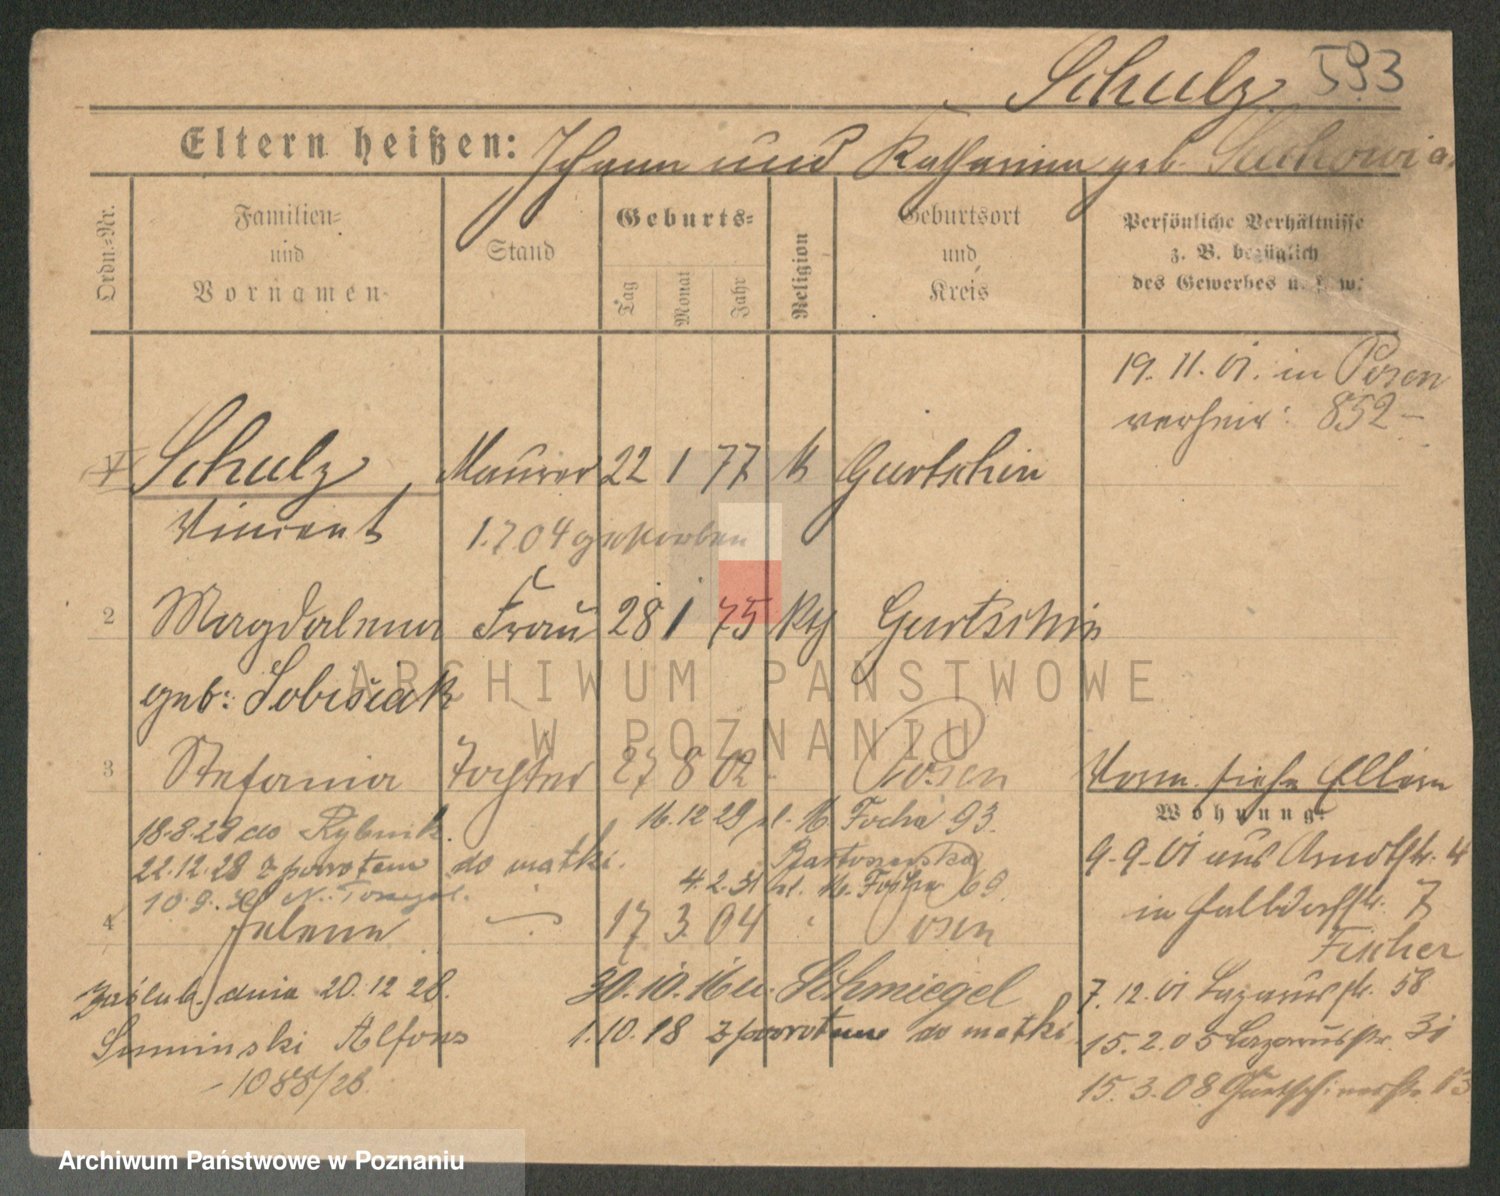 Schulz 593
Eltern heißen: Johann und Katharina geb.
Ordn.=Nr.
Familien=
und
Vornamen
Stand
Geburts=
Tag
Monat
Jahr
Religion
Geburtsort
und
Kreis
Persönliche Verhältnisse
z. B. bezüglich
des Gewerbes u. s. w.
19. 11. 01. in Posen
verheir: 852
1 Schulz Maurer 22 1 77 k Gurtschin
Vincent 1. 7 04 gestorben
2 Magdalena Frau 28 1 75 kth Gurtschin
geb: Sobisiak
3 Stefania Tochter 27 8 02 Posen
Vorm. siehe Eltern
Wohnung:
18.8.29 do Rybnik. 16.12 29 pl. M. Focha 93.
9-9-01 aus Arndtstr. 4
22.12.28 z powrotem do matki.
4.2.31 ul. M. Focha 69
in Halbdorfstr. 7
Fischer
4 Helena 17 3 04 Posen
Zaślub. dnia 20.12 28. 30.10.16 u. Schmiegel
7.12.01 Lazarusstr. 58
Suminski Alfons 1.10.18 z powrotem do matki
15.2.05 Lazarusstr. 31
1088/28.
15.3.08 Gurtschinerstr. 13
ARCHIWUM PAŃSTWOWE
W POZNANIU
Archiwum Państwowe w Poznaniu